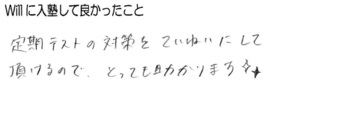 Willに入塾して良かったこと
定期テストの対策をていねいにして
頂けるので、とっても助かります☆